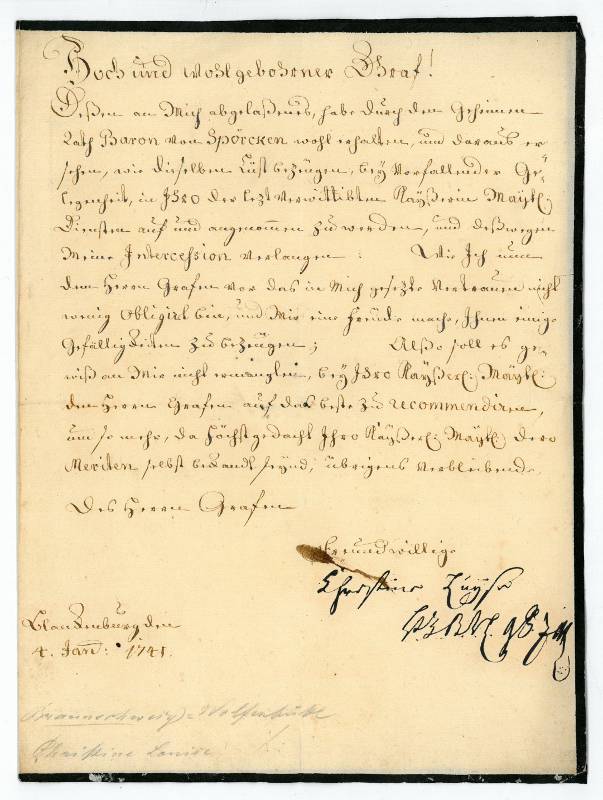 Hoch und Wohlgebohrner Graf!
Deßen an Mich abgelaßenes, habe durch den Geheimen
Rath Baron von Spörcken wohl erhalten, und daraus er
sehen, wie dieselben Lust bezeugen, bey Vorfallender Ge-
legenheit, in Ihro der lezt Verwittibten Kayßerin Maytl:
Diensten auf und angenommen zu werden, und deßwegen
Meine Intercession verlangen: Wie Ich nun
dem Herrn Grafen vor das in Mich gesezte Vertrauen nicht
wenig obligirt bin, und Mir eine Freude mache, Ihnen einige
Gefälligkeiten zu bezeugen; Alßo soll es ge-
wiß an Mir nicht ermanglen, bey Ihro Kayßerl: Maytl:
den Herrn Grafen auf das beste zu recommendiren,
um so mehr, da Höchstgedacht Ihro Kayßerl: Maytl: dero
Meriten selbst bekandt seynd, übrigens Verbleibende
Des Herrn Grafen
Freundwillige
Christine Luyse
Blanckenburg den
4. Jan: 1741.
Braunschweig-Wolfenbüttel
Christine Louise